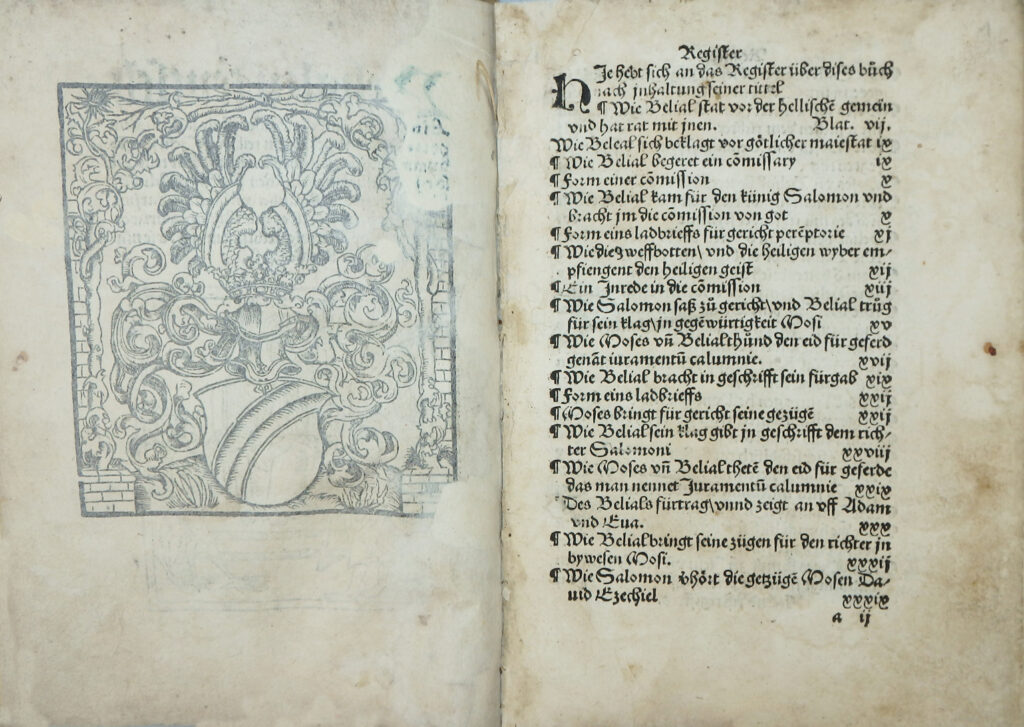 Register
HJe hebt sich an das Register über dises bůch
nach jnhaltung seiner tittel
¶ Wie Belial stat vor der hellischē gemein
vnd hat rat mit jnen. Blat. vij.
Wie Beleal sich beklagt vor götlicher maiestat ix
¶ Wie Belial begeret ein cōmissary ix
¶ Form einer cōmission x
¶ Wie Belial kam für den künig Salomon vnd
bracht jm die cōmission von got x
¶ Form eins ladbrieffs für gericht perēptorie xj
¶ Wie die zweffbotten\ vnd die heiligen wyber em⸗
pfiengent den heiligen geist xij
¶ Ein Jnrede in die cōmission xiij
¶ Wie Salomon saß zů gericht\ vnd Belial trůg
für sein klag\ jn gegēwürtigkeit Mosi xv
¶ Wie Moses vn̄ Belial thůnd den eid für geferd
genāt iuramentū calumnie. xvij
¶ Wie Belial bracht in geschrifft sein fürgab xix
¶ Form eins ladbrieffs xxij
¶ Moses bringt für gericht seine gezügē xxij
¶ Wie Belial sein klag gibt jn geschrifft dem rich⸗
ter Salomoni xxviij
¶ Wie Moses vn̄ Belial thetē den eid für geferde
das man nennet Juramentū calumnie xxix
Des Belials fürtrag\ vnnd zeigt an vff Adam
vnd Eua. xxx
¶ Wie Belial bringt seine zügen für den richter jn
bywesen Mosi. xxxij
¶ Wie Salomon v̄hört die getzügē Mosen Da⸗
uid Ezechiel xxxix
a ij